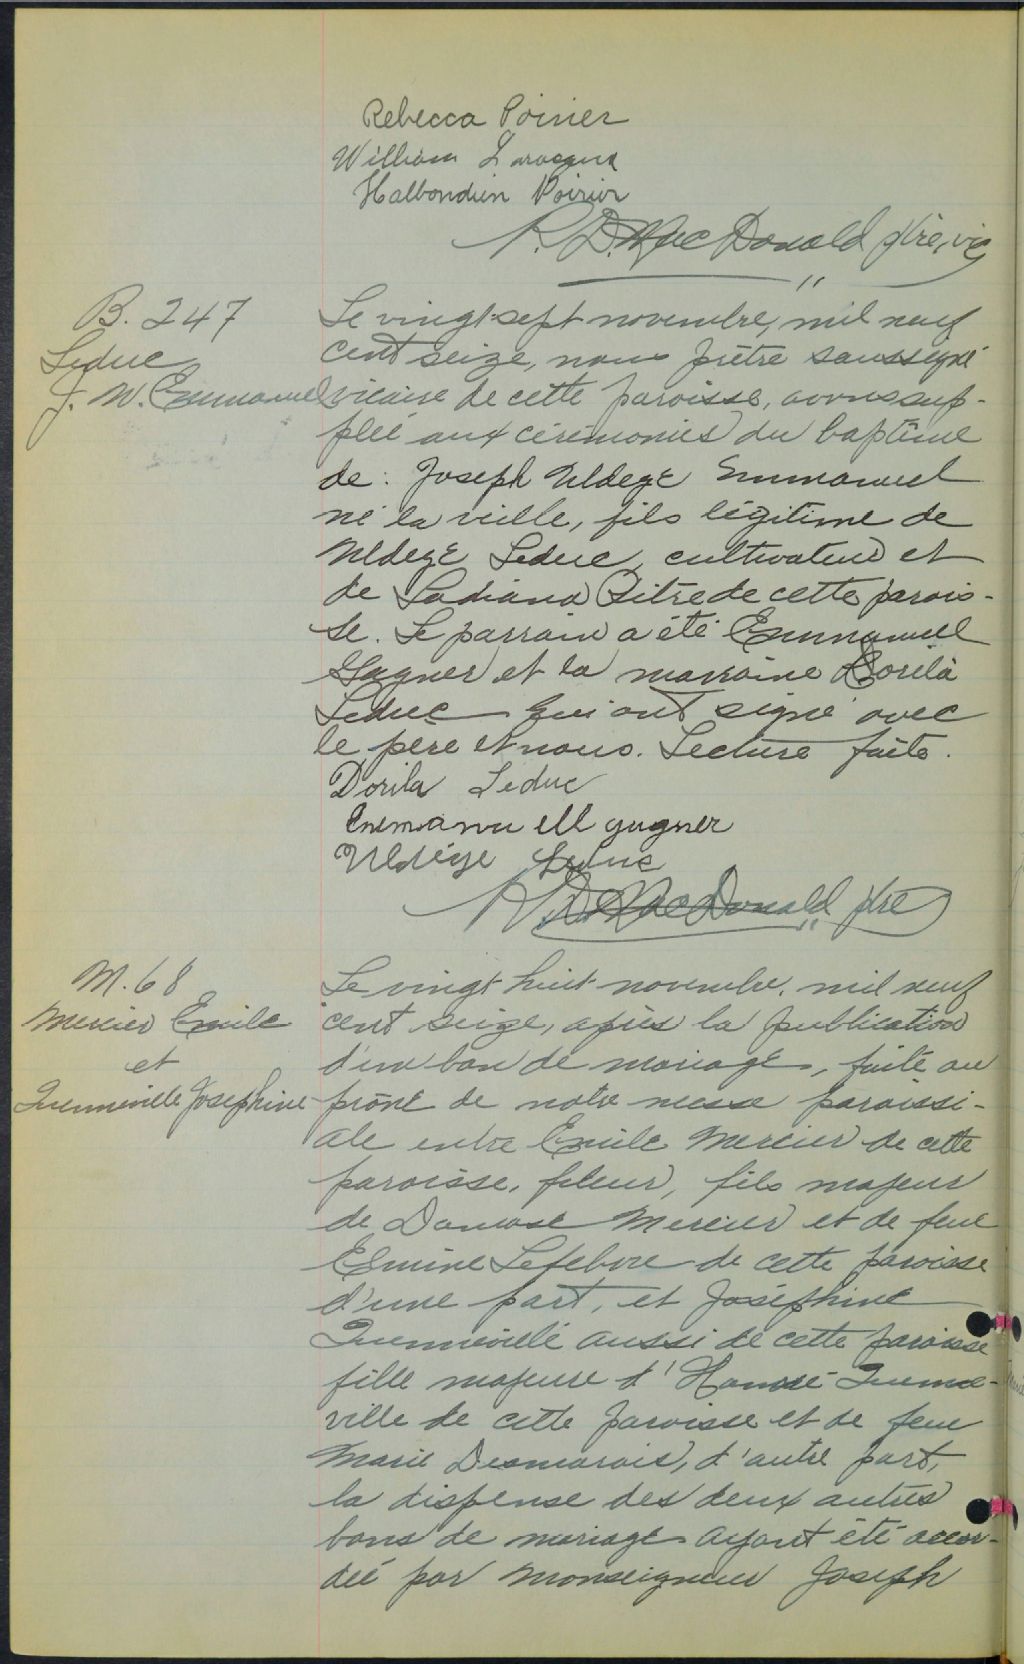 Rebecca Poirier
William Larocque
Halbondien Poirier
R. D. MacDonald ptre, vic
B. 247
Leduc
J. N. Emmanuel
Le vingt-sept novembre, mil neuf
cent seize, nous prêtre soussigné
vicaire de cette paroisse, avons sup-
pléé aux cérémonies du baptême
de: Joseph Uldege Emmanuel
né la veille, fils légitime de
Uldege Leduc, cultivateur et
de Ladiana Pitre de cette parois-
se. Le parrain a été Emmanuel
Gagner et la marraine Dorila
Leduc qui ont signé avec
le père et nous. Lecture faite.
Dorila Leduc
Emmanuell gagner
Uldége Leduc
R. D. MacDonald ptre
M. 68
Mercier Emile
et
Quenneville Josephine
Le vingt huit novembre, mil neuf
cent seize, après la publication
d'un ban de mariage, faite au
prône de notre messe paroissi-
ale entre Emile Mercier de cette
paroisse, fileur, fils majeur
de Damase Mercier et de feue
Elmire Lefebvre de cette paroisse
d'une part, et Joséphine
Quenneville aussi de cette paroisse
fille majeure d'Honoré Quenne-
ville de cette paroisse et de feue
Marie Desmarais, d'autre part,
la dispense des deux autres
bans de mariage ayant été accor-
dée par Monseigneur Joseph